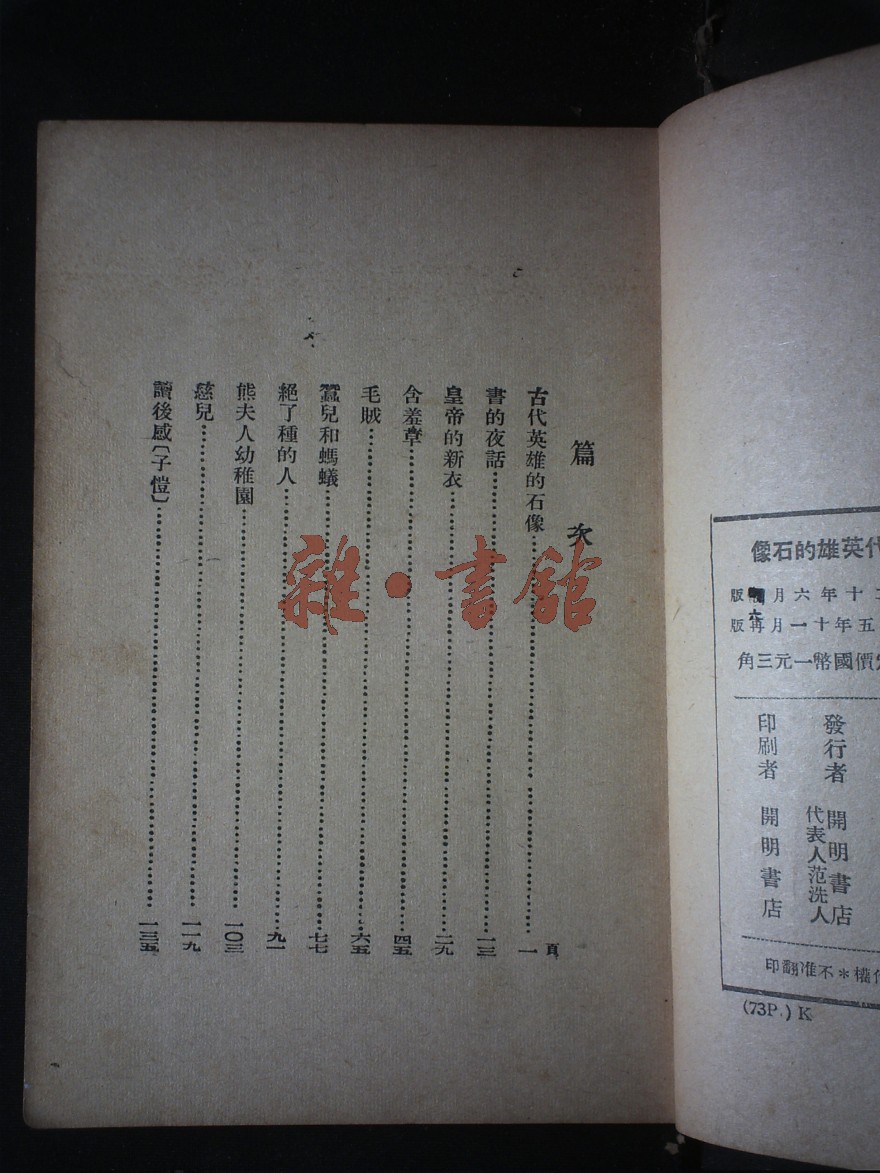 篇次
頁
古代英雄的石像 一
書的夜話 一三
皇帝的新衣 二九
含羞草 四五
毛賊 六五
蠶兒和螞蟻 七七
絕了種的人 九一
熊夫人幼稚園 一〇三
慈兒 一一九
讀後感〔子愷〕 一三五
雜·書館
代英雄的石像
二十年六月版
六
五年十一月再版
價國幣一元三角
發行者 開明書店
代表人范洗人
印刷者 開明書店
權*不准翻印
(73P.) K